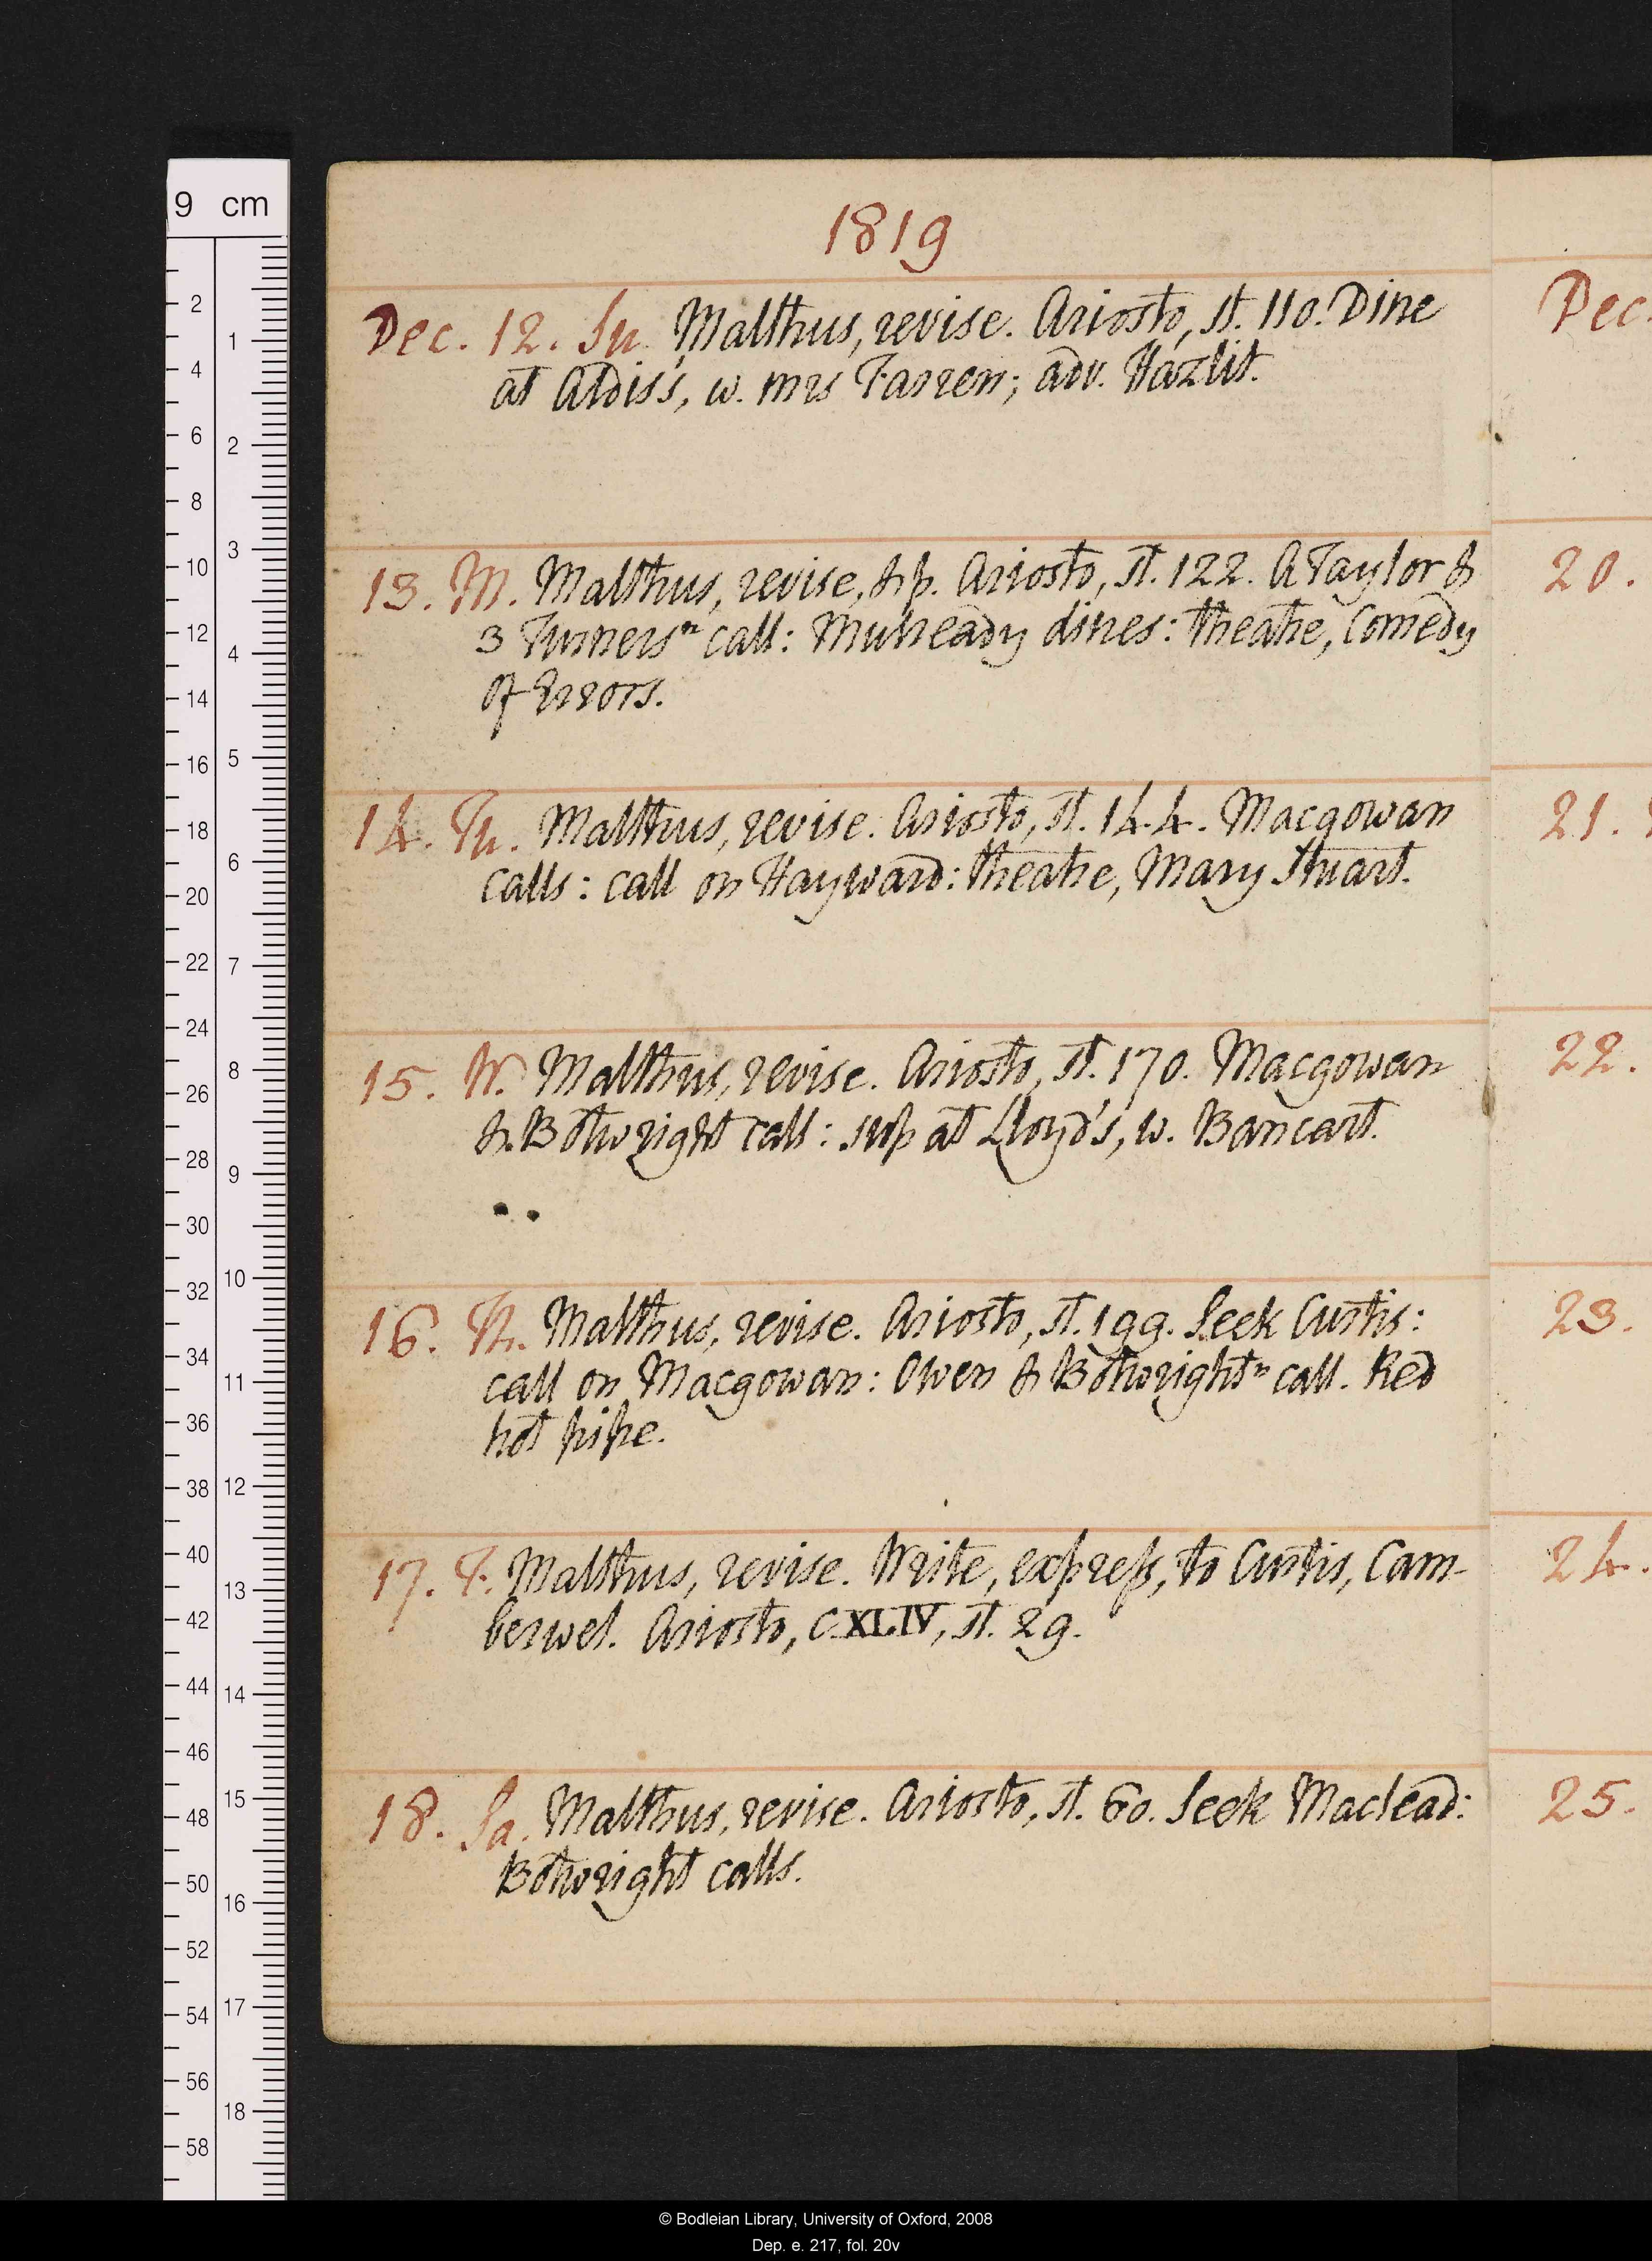 9 cm
1819
Dec. 12. Su. Malthus, revise. Ariosto, st. 110. Dine
at Aldis's, w. mrs Farren; adv. Hazlit.
13. M. Malthus, revise, & p. Ariosto, st. 122. A Taylor &
3 Turners ⁿ call: Mulready dines: theatre, Comedy
of Errors.
14. Tu. Malthus, revise. Ariosto, st. 144. Macgowan
calls: call on Hayward: theatre, Mary Stuart.
15. W. Malthus, revise. Ariosto, st. 170. Macgowan
& Botwright call: sup at Lloyd's, w. Bancart.
16. Th. Malthus, revise. Ariosto, st. 199. Seek Curtis:
call on Macgowan: Owen & Botwright ⁿ call. Red
hot pipe.
17. F. Malthus, revise. Write, express, to Curtis, Cam-
berwel. Ariosto, C.XLIV, st. 29.
18. Sa. Malthus, revise. Ariosto, st. 60. Seek Maclead:
Botwright calls.
Dec.
20.
21.
22.
23.
24.
25.
© Bodleian Library, University of Oxford, 2008
Dep. e. 217, fol. 20v